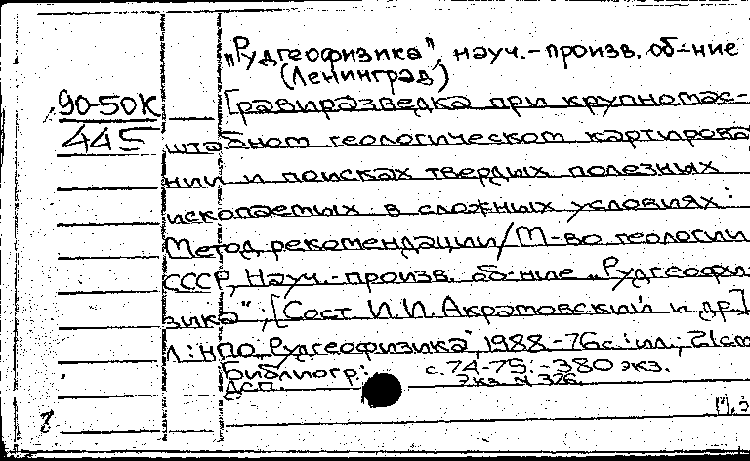 „Рудгеофизика", науч.-произв. об-ние
(Ленинград)
90-50К
[равиразведка при крупномас-
445
штабном геологическом картирова
нии и поисках твердых полезных
ископаемых в сложных условиях:
Метод. рекомендации/М-во геологии
СССР, Науч.-произв. об-ние „Рудгеофи
зика"; [Сост. И.И. Акрамовский и др.]
Л.: НПО „Рудгеофизика", 1988.-76с.: ил.; 21см
Библиогр.: с.74-75.-380 экз.
ДСП. Экз. N 326.